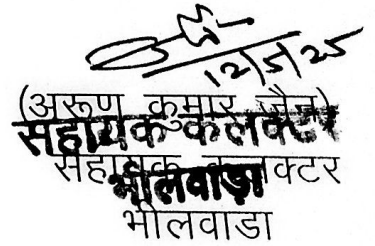 12/5/25
(अरूण कुमार जैन)
सहायक कलक्टर
सहायक कलक्टर
भीलवाड़ा
भीलवाडा